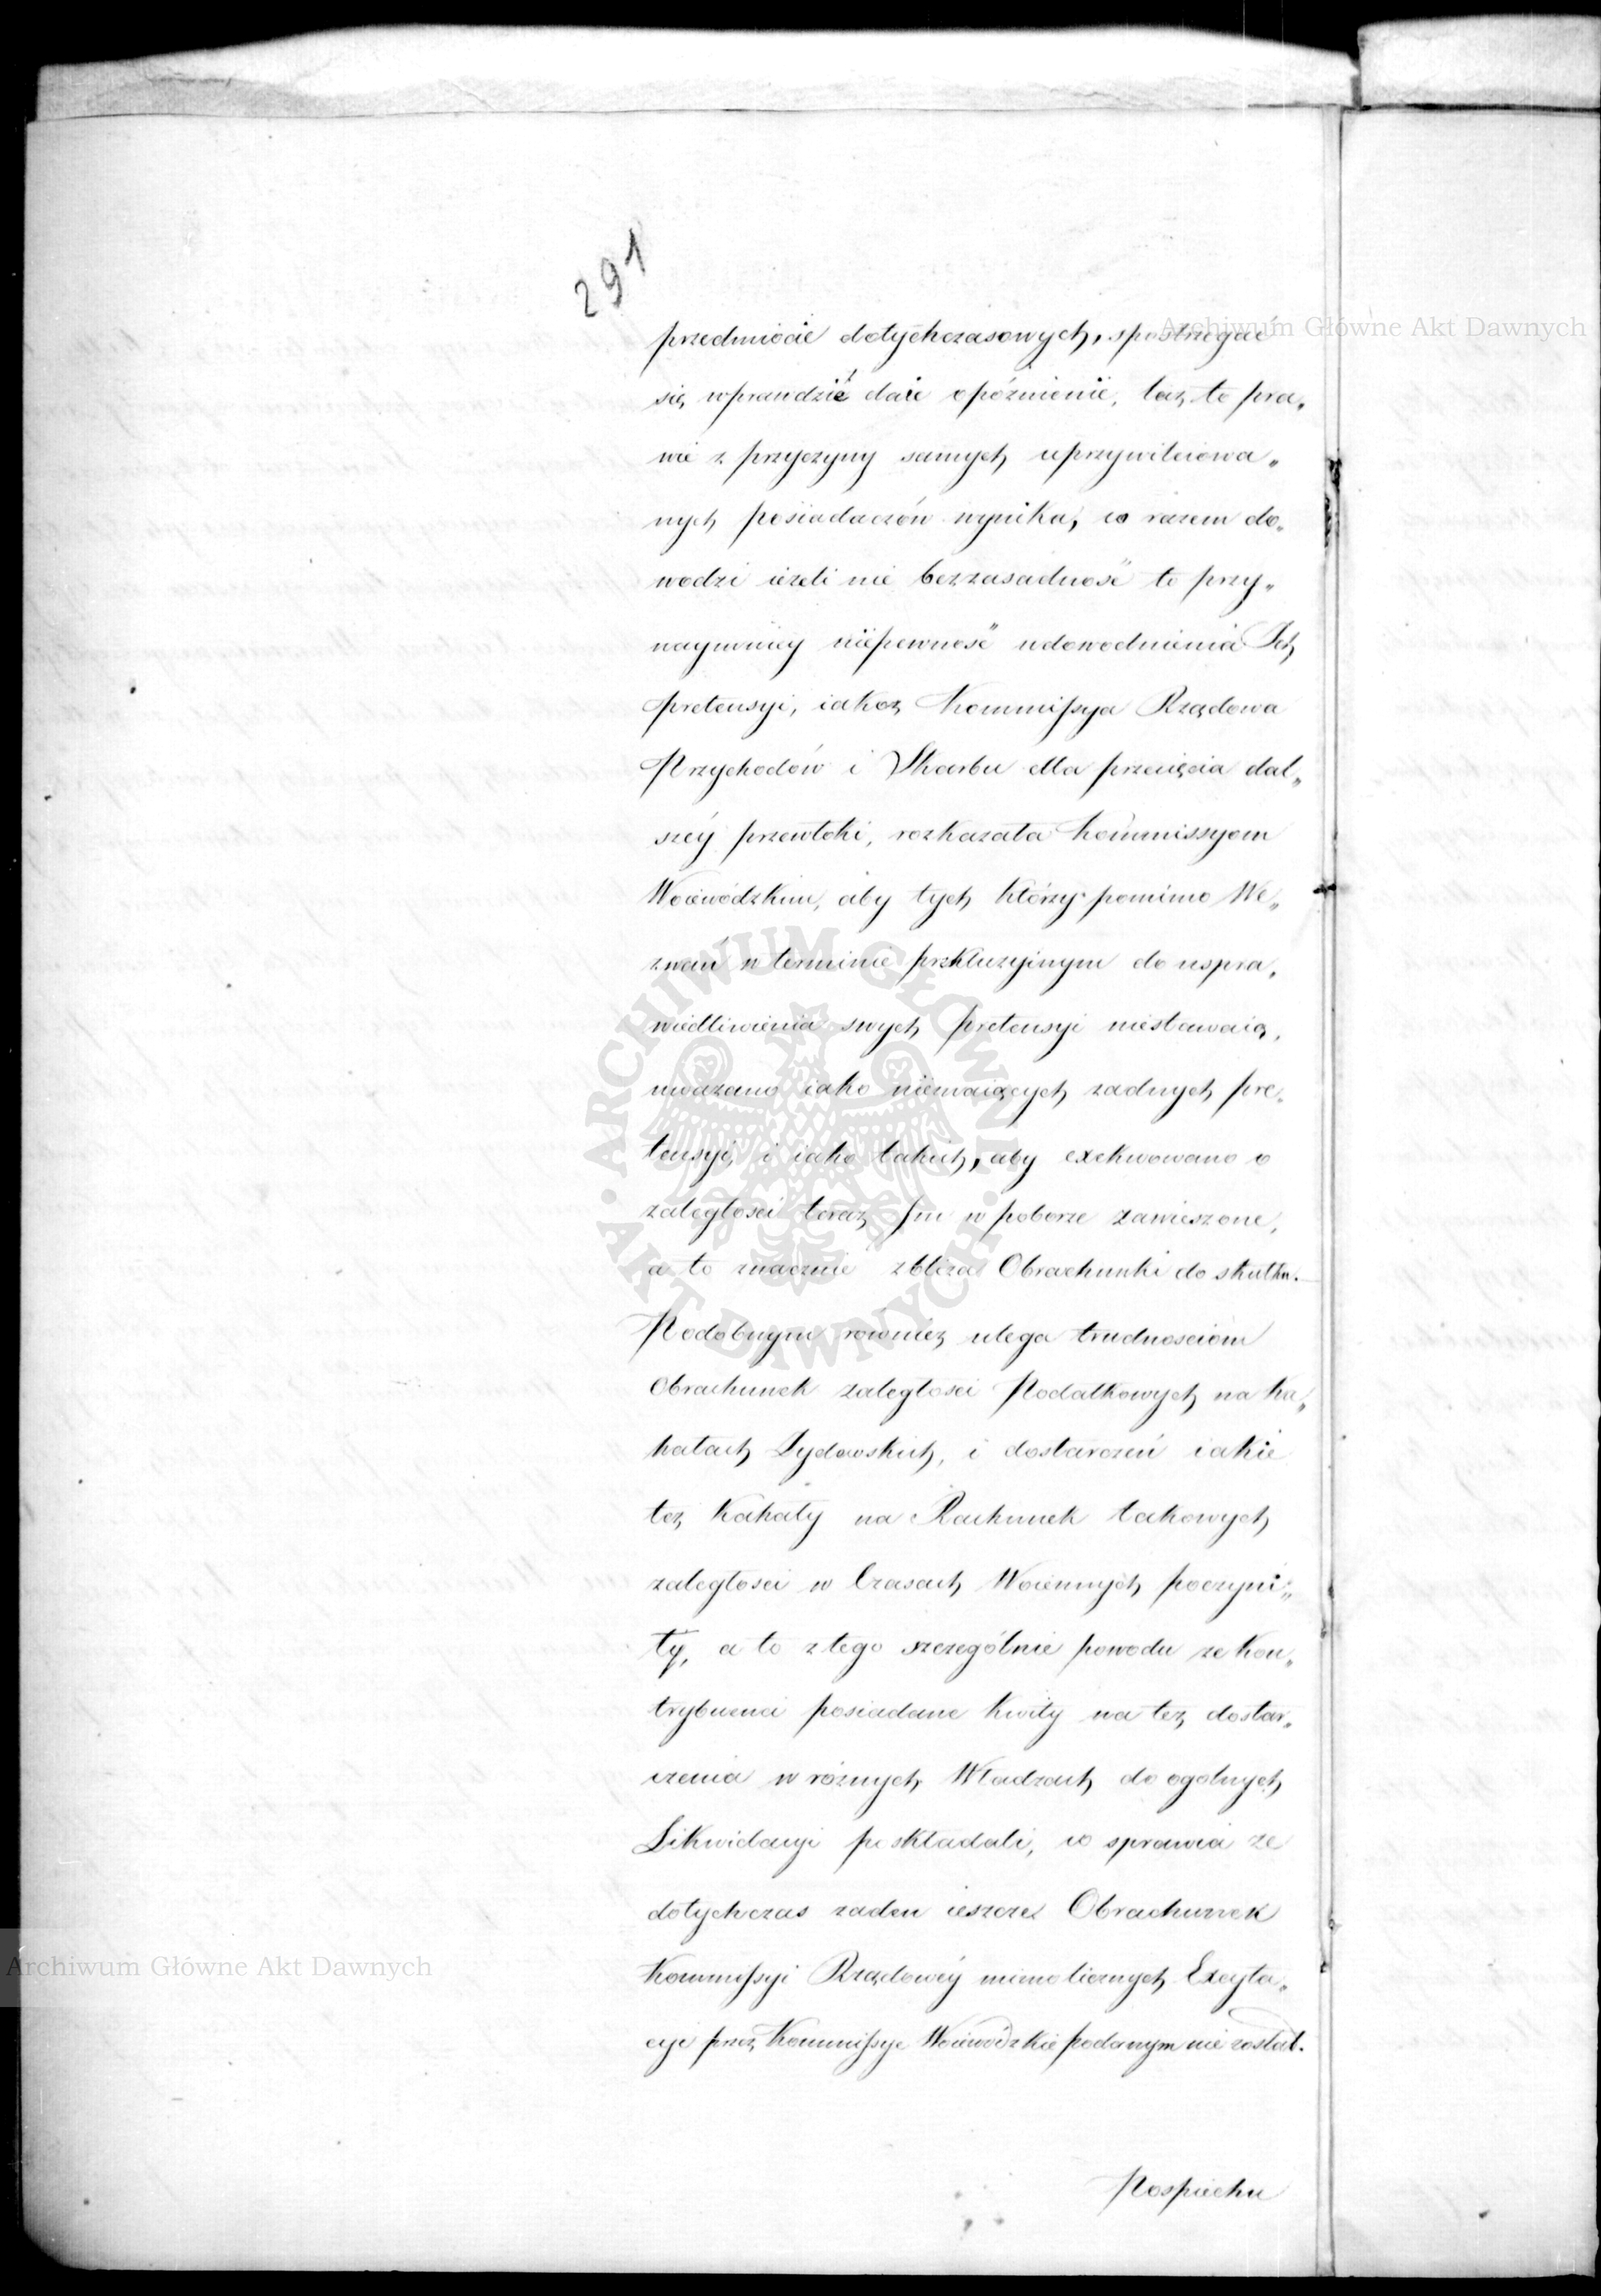 291
przedmiocie dotychczasowych, spostrzegać
się wprawdzie daie opóźnienie, lecz to pra„
wie z przyczyny samych uprzywileiowa„
nych posiadaczów wynika, co razem do„
wodzi ieżeli nie bezzasadność to przy„
naymniey niepewność udowodnienia Ich
pretensyi, iakoż Kommissya Rządowa
Przychodów i Skarbu dla przecięcia dal„
széy przewłoki, rozkazała Kommissyom
Woiewódzkim, aby tych którzy pomimo We„
zwań w terminie prekluzyinym do uspra„
wiedliwienia swych pretensyi niestawaią,
uważano iako niemaiących żadnych pre„
tensyi, i iako takich, aby exekwowano o
zaległości teraz Im w poborze zawieszone,
a to znacznie zbliża Obrachunki do skutku.
Podobnym również ulega trudnościom
Obrachunek zaległości Podatkowych na Ka„
hałach Żydowskich, i dostarczeń iakie
też Kahały na Rachunek takowych
zaległości w Czasach Woiennych poczyni„
ły, a to z tego szczególnie powodu że Kon„
trybuenci posiadane Kwity na też dostar„
czenia w różnych Władzach do ogólnych
Likwidacyi poskładali, co sprawia że
dotychczas żaden ieszcze Obrachunek
Kommissyi Rządowéy mimo licznych Excyta„
cyi przez Kommissye Woiewódzkie podanym nie został.
Pospiechu
Archiwum Główne Akt Dawnych
Archiwum Główne Akt Dawnych
ARCHIWUM GŁÓWNE • AKT DAWNYCH •